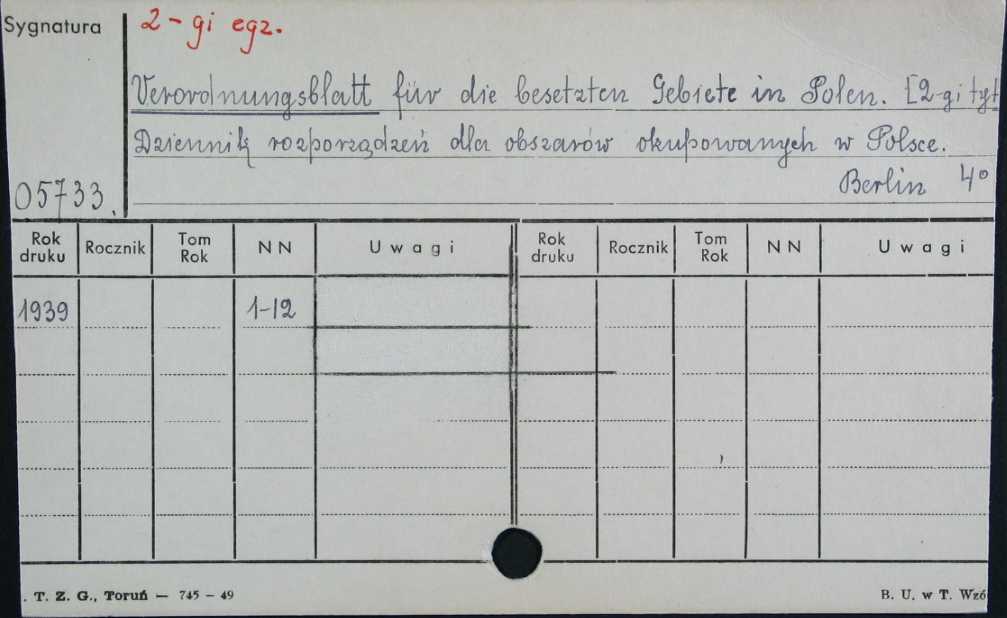 Sygnatura
2-gi egz.
Verordnungsblatt für die besetzten Gebiete in Polen. [2-gi tyt
Dziennik rozporządzeń dla obszarów okupowanych w Polsce.
05733.
Berlin 4°
Rok druku Rocznik Tom Rok NN Uwagi Rok druku Rocznik Tom Rok NN Uwagi
1939 1-12
. T. Z. G., Toruń — 745 - 49 B. U. w T. Wzó